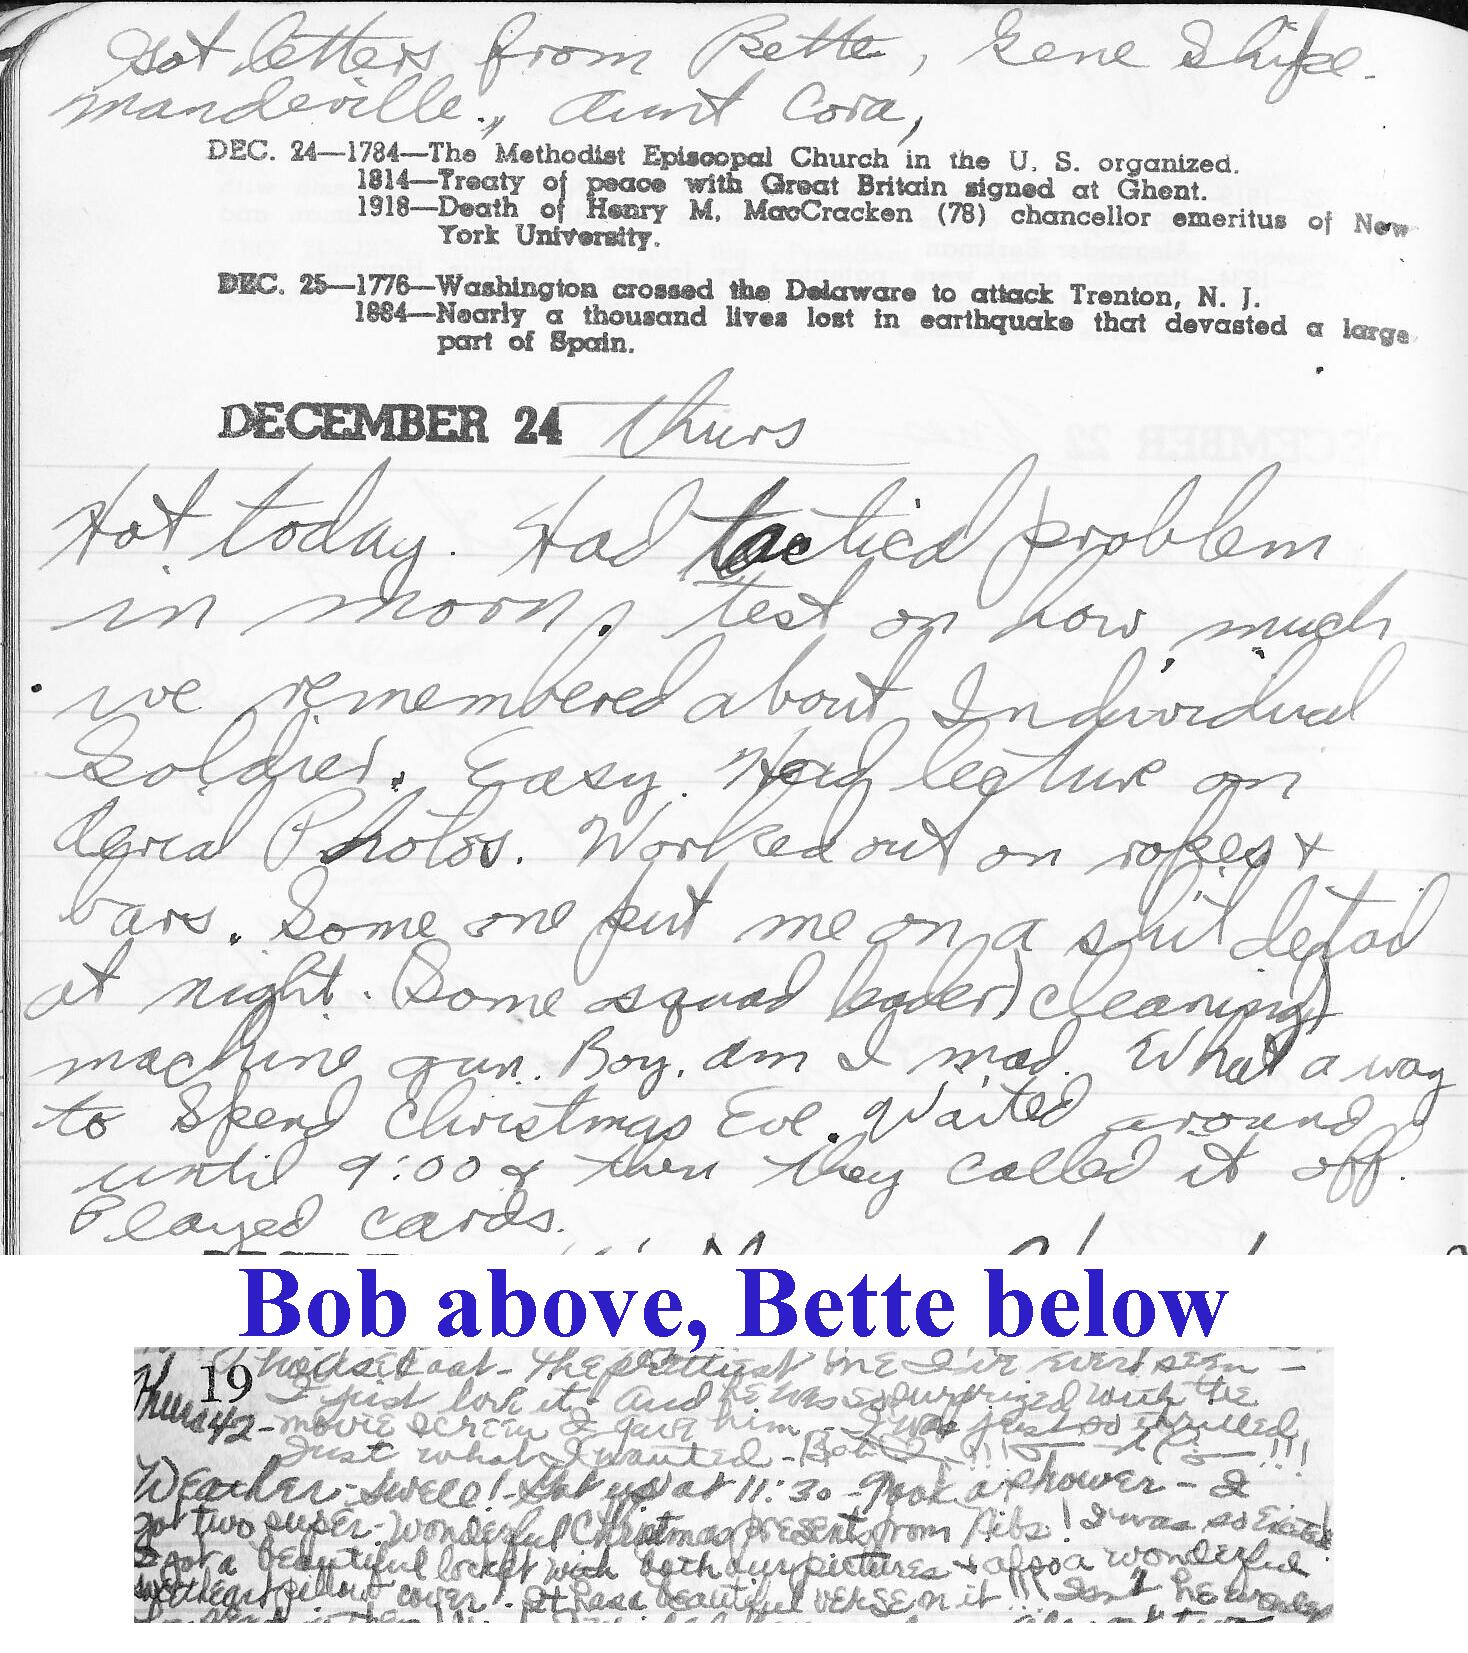 Got letters from Bette, Gene Shife-
mandeville., Aunt Cora,
DEC. 24—1784—The Methodist Episcopal Church in the U. S. organized.
1814—Treaty of peace with Great Britain signed at Ghent.
1918—Death of Henry M. MacCracken (78) chancellor emeritus of New
York University.
DEC. 25—1776—Washington crossed the Delaware to attack Trenton, N. J.
1884—Nearly a thousand lives lost in earthquake that devasted a large
part of Spain.
DECEMBER 24 Thurs
Hot today. Had tactical problem
in morn, test on how much
we remembered about Individual
Soldier. Easy. Had lecture on
Aerial Photos. Worked out on ropes &
bars. Some one put me on a shit detail
at night. (Some squad leader) cleaning
machine gun. Boy, am I mad. What a way
to spend Christmas Eve. Waited around
until 9:00 & then they called it off.
Played cards.
Bob above, Bette below
19 housecoat - The prettiest one I've ever seen -
I just love it - and he was so surprized with the
Thurs 42 - movie screen I gave him - I was just so thrilled
Just what I wanted - !!!
Weather - swell! - Got up at 11:30 - Took a shower - I
got two super-wonderful Christmas presents from Nibs! I was so excited
I got a beautiful locket with both our pictures & also a wonderful
sweetheart pillow cover! It has a beautiful verse on it!!! Isn't he